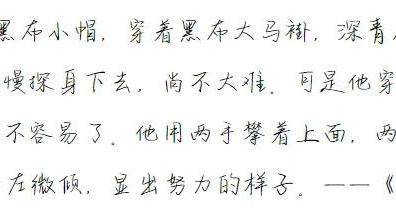 黑布小帽，穿着黑布大马褂，深青
慢探身下去，尚不大难。可是他穿
不容易了。他用两手攀着上面，两
左微倾，显出努力的样子。——《